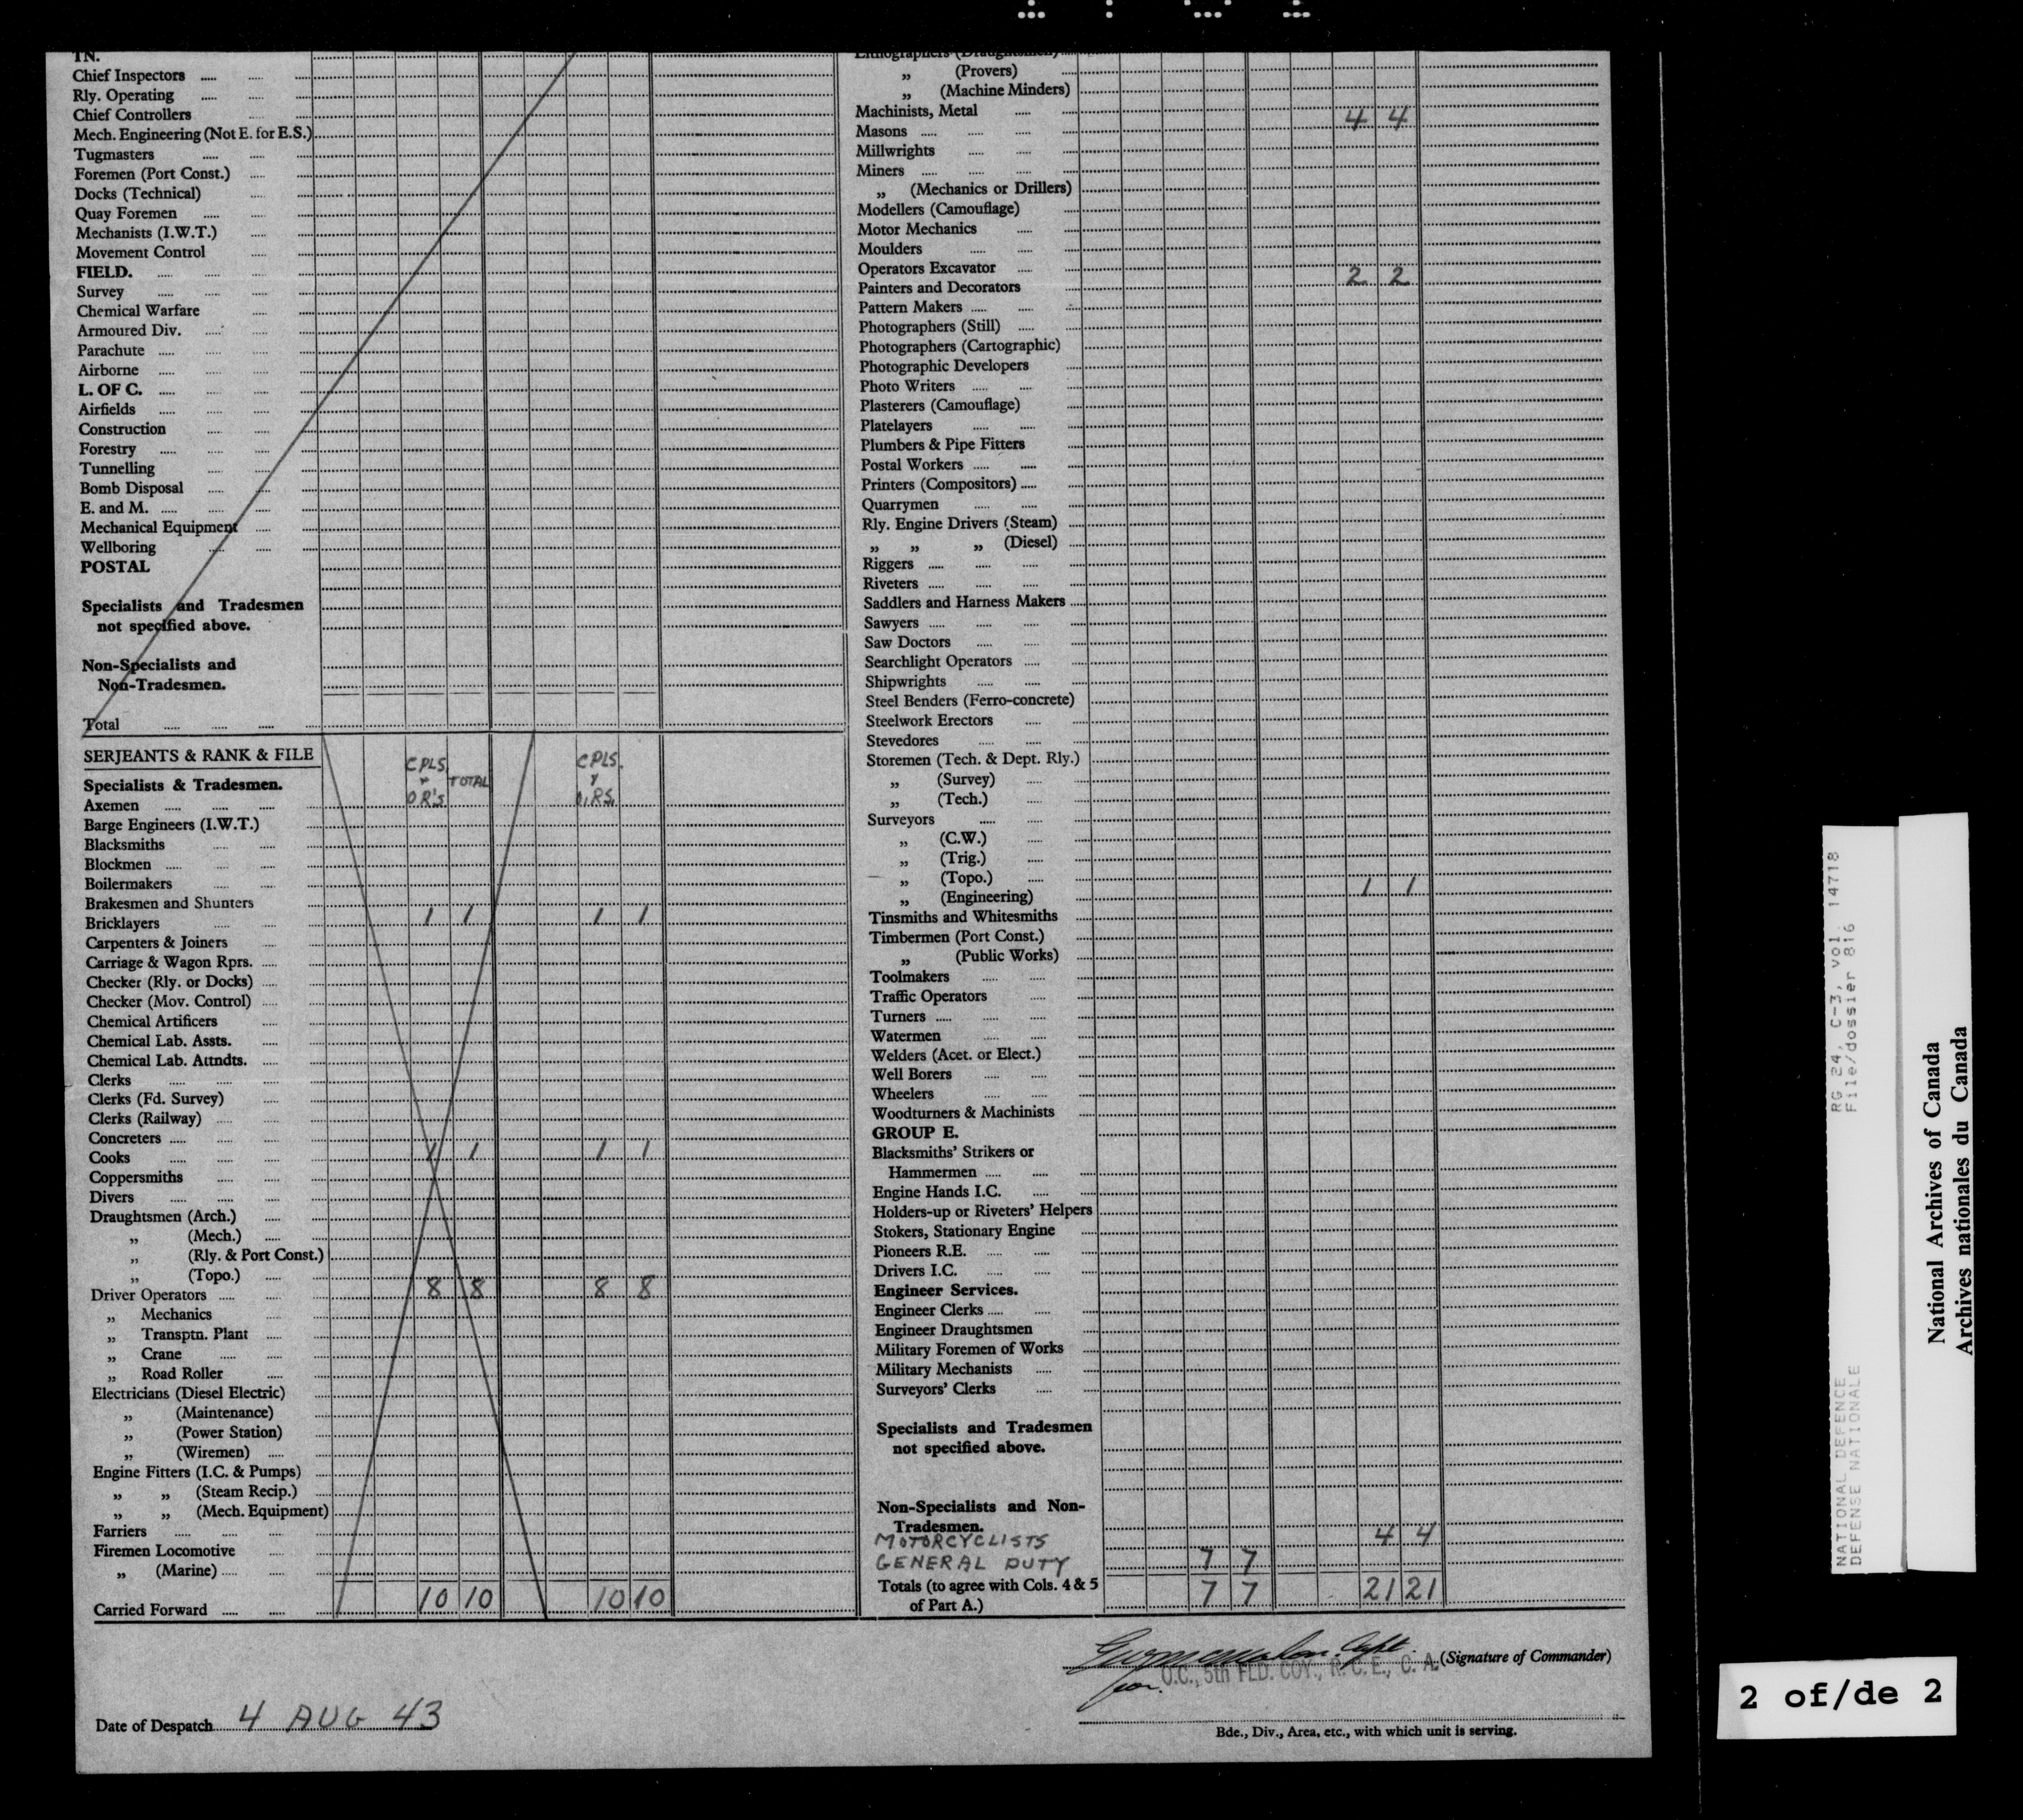 TN.
Chief Inspectors
Rly. Operating
Chief Controllers
Mech. Engineering (Not E. for E.S.)
Tugmasters
Foremen (Port Const.)
Docks (Technical)
Quay Foremen
Mechanists (I.W.T.)
Movement Control
FIELD.
Survey
Chemical Warfare
Armoured Div.
Parachute
Airborne
L. OF C.
Airfields
Construction
Forestry
Tunnelling
Bomb Disposal
E. and M.
Mechanical Equipment
Wellboring
POSTAL
Specialists and Tradesmen
not specified above.
Non-Specialists and
Non-Tradesmen.
Total
SERJEANTS & RANK & FILE
CPLS. & O R'S TOTAL CPLS. & O.RS.
Specialists & Tradesmen.
Axemen
Barge Engineers (I.W.T.)
Blacksmiths
Blockmen
Boilermakers
Brakesmen and Shunters
Bricklayers 1 1 1 1
Carpenters & Joiners
Carriage & Wagon Rprs.
Checker (Rly. or Docks)
Checker (Mov. Control)
Chemical Artificers
Chemical Lab. Assts.
Chemical Lab. Attndts.
Clerks
Clerks (Fd. Survey)
Clerks (Railway)
Concreters
Cooks 1 1 1 1
Coppersmiths
Divers
Draughtsmen (Arch.)
„ (Mech.)
„ (Rly. & Port Const.)
„ (Topo.)
Driver Operators 8 8 8 8
„ Mechanics
„ Transptn. Plant
„ Crane
„ Road Roller
Electricians (Diesel Electric)
„ (Maintenance)
„ (Power Station)
„ (Wiremen)
Engine Fitters (I.C. & Pumps)
„ „ (Steam Recip.)
„ „ (Mech. Equipment)
Farriers
Firemen Locomotive
„ (Marine)
Carried Forward 10 10 10 10
Lithographers (Draughtsmen)
„ (Provers)
„ (Machine Minders)
Machinists, Metal 4 4
Masons
Millwrights
Miners
„ (Mechanics or Drillers)
Modellers (Camouflage)
Motor Mechanics
Moulders
Operators Excavator 2 2
Painters and Decorators
Pattern Makers
Photographers (Still)
Photographers (Cartographic)
Photographic Developers
Photo Writers
Plasterers (Camouflage)
Platelayers
Plumbers & Pipe Fitters
Postal Workers
Printers (Compositors)
Quarrymen
Rly. Engine Drivers (Steam)
„ „ „ (Diesel)
Riggers
Riveters
Saddlers and Harness Makers
Sawyers
Saw Doctors
Searchlight Operators
Shipwrights
Steel Benders (Ferro-concrete)
Steelwork Erectors
Stevedores
Storemen (Tech. & Dept. Rly.)
„ (Survey)
„ (Tech.)
Surveyors
„ (C.W.)
„ (Trig.)
„ (Topo.) 1 1
„ (Engineering)
Tinsmiths and Whitesmiths
Timbermen (Port Const.)
„ (Public Works)
Toolmakers
Traffic Operators
Turners
Watermen
Welders (Acet. or Elect.)
Well Borers
Wheelers
Woodturners & Machinists
GROUP E.
Blacksmiths' Strikers or
Hammermen
Engine Hands I.C.
Holders-up or Riveters' Helpers
Stokers, Stationary Engine
Pioneers R.E.
Drivers I.C.
Engineer Services.
Engineer Clerks
Engineer Draughtsmen
Military Foremen of Works
Military Mechanists
Surveyors' Clerks
Specialists and Tradesmen
not specified above.
Non-Specialists and Non-
Tradesmen.
MOTORCYCLISTS 4 4
GENERAL DUTY 7 7
Totals (to agree with Cols. 4 & 5 7 7 21 21
of Part A.)
Capt. (Signature of Commander)
for O.C., 5th FLD. COY., R. C. E., C. A.
Date of Despatch 4 AUG 43
Bde., Div., Area, etc., with which unit is serving.
RG 24, C-3, vol. 14718
File/dossier 816
NATIONAL DEFENCE
DEFENSE NATIONALE
National Archives of Canada
Archives nationales du Canada
2 of/de 2